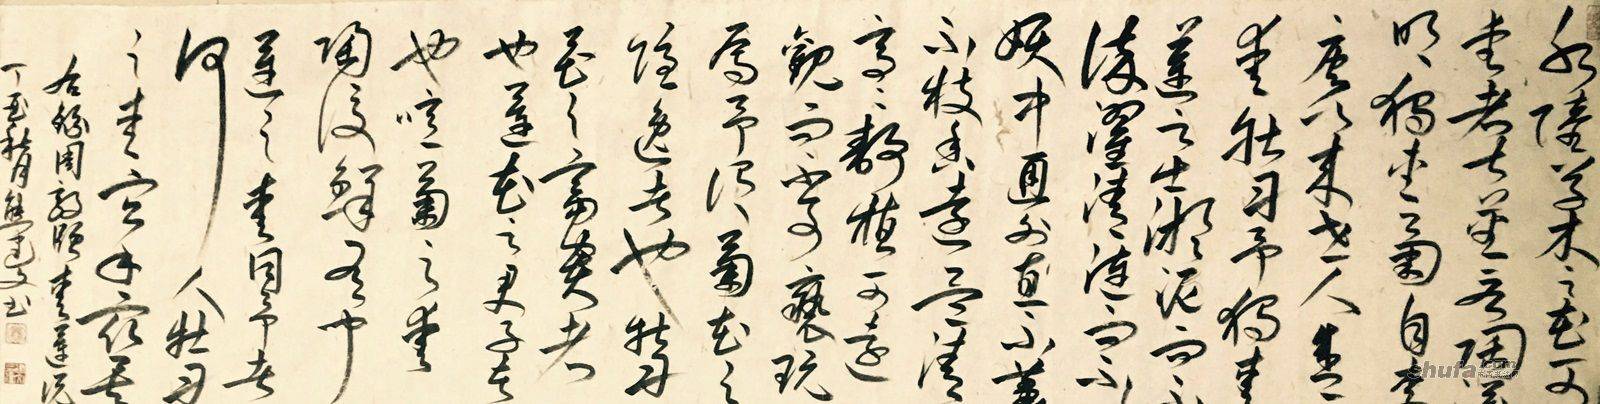 水陸草木之花可
愛者甚蕃晉陶淵
明獨愛菊自李
唐以來世人甚
愛牡丹予獨愛
蓮之出淤泥而不
染濯清漣而不
妖中通外直不蔓
不枝香遠益清
亭亭靜植可遠
觀而不可褻玩
焉予謂菊花之
隱逸者也牡丹
花之富貴者
也蓮花之君子者
也噫菊之愛
陶後鮮有聞
蓮之愛同予者
何人牡丹
之愛宜乎眾矣
右錄周敦頤愛蓮說
丁亥秋月熊建文書
shufa